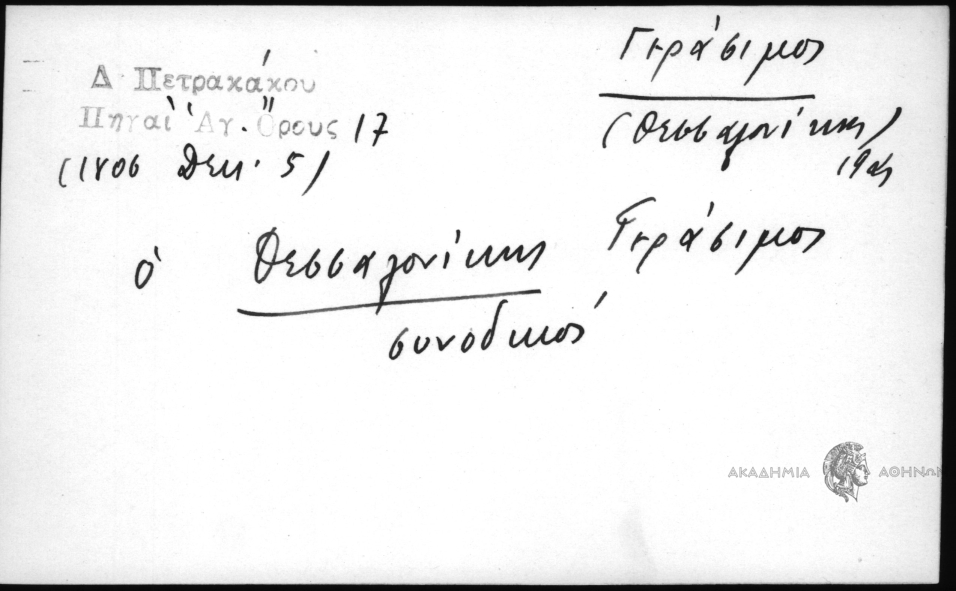 Γεράσιμος
(Θεσσαλονίκης)
19ος
Δ Πετρακάκου
Πηγαὶ Ἁγ. Ὄρους 17
(1806 Δεκ. 5)
ὁ Θεσσαλονίκης Γεράσιμος
συνοδικός
ΑΚΑΔΗΜΙΑ ΑΘΗΝΩΝ